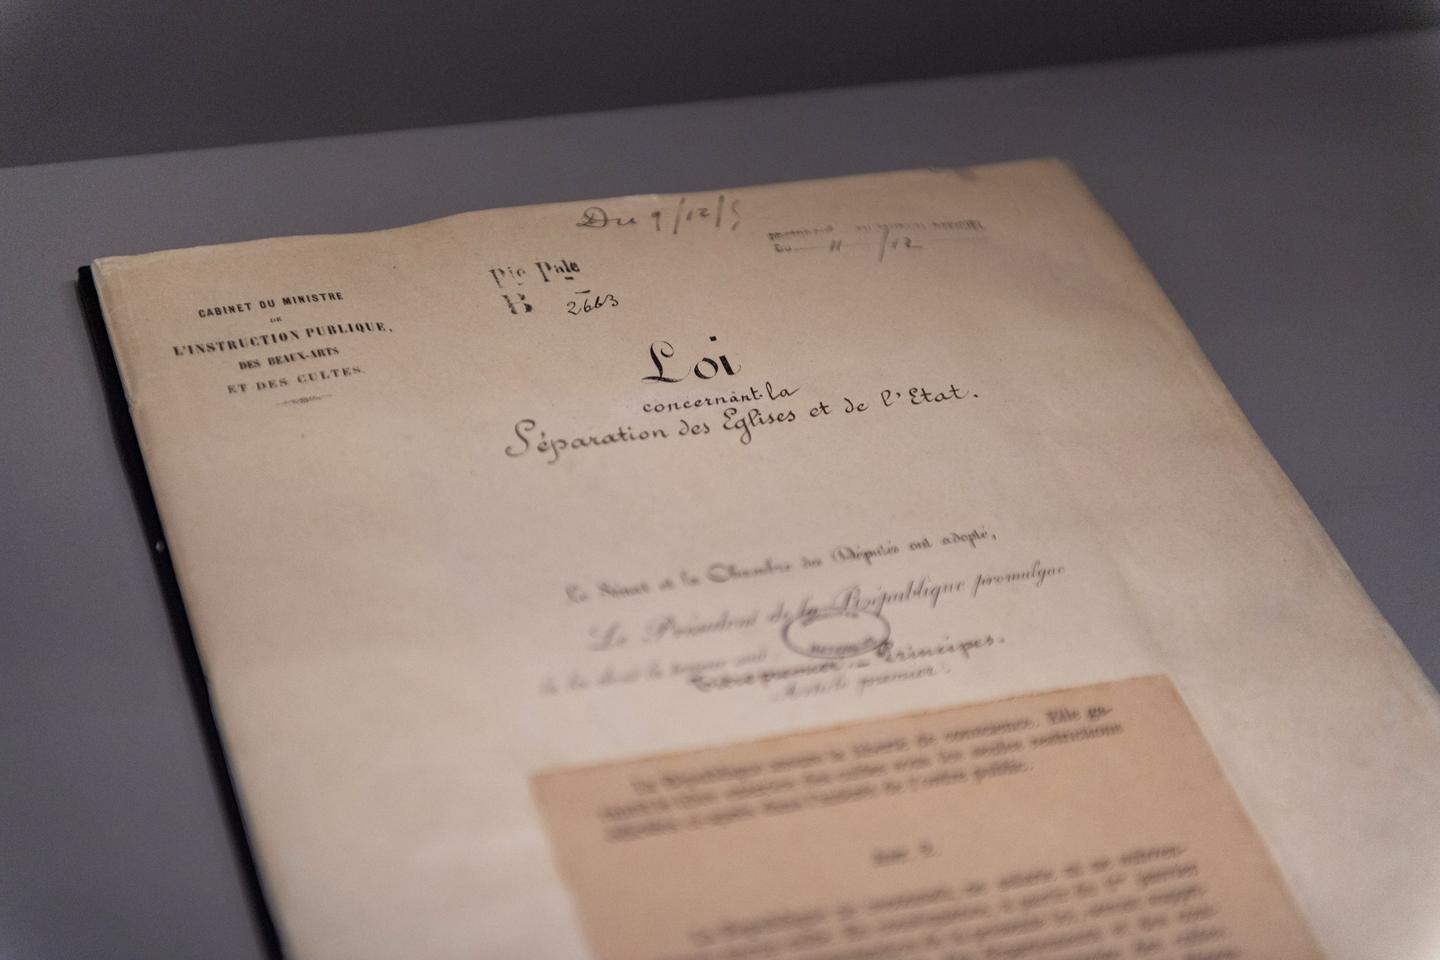 Du 9/12/5
Du 11/12
Pie Pale
B 2663
CABINET DU MINISTRE
DE
L'INSTRUCTION PUBLIQUE,
DES BEAUX-ARTS
ET DES CULTES.
Loi
concernant la
Séparation des Eglises et de l'Etat.
Le Sénat et la Chambre des Députés ont adopté,
Le Président de la République promulgue
la loi dont la teneur suit
Titre premier - Principes.
Article premier.
La République assure la liberté de conscience. Elle ga-
sous les seules restrictions
l'intérêt de l'ordre public.
Art. 2.
La République ne reconnaît, ne salarie ni ne subven-
à partir du 1er janvier